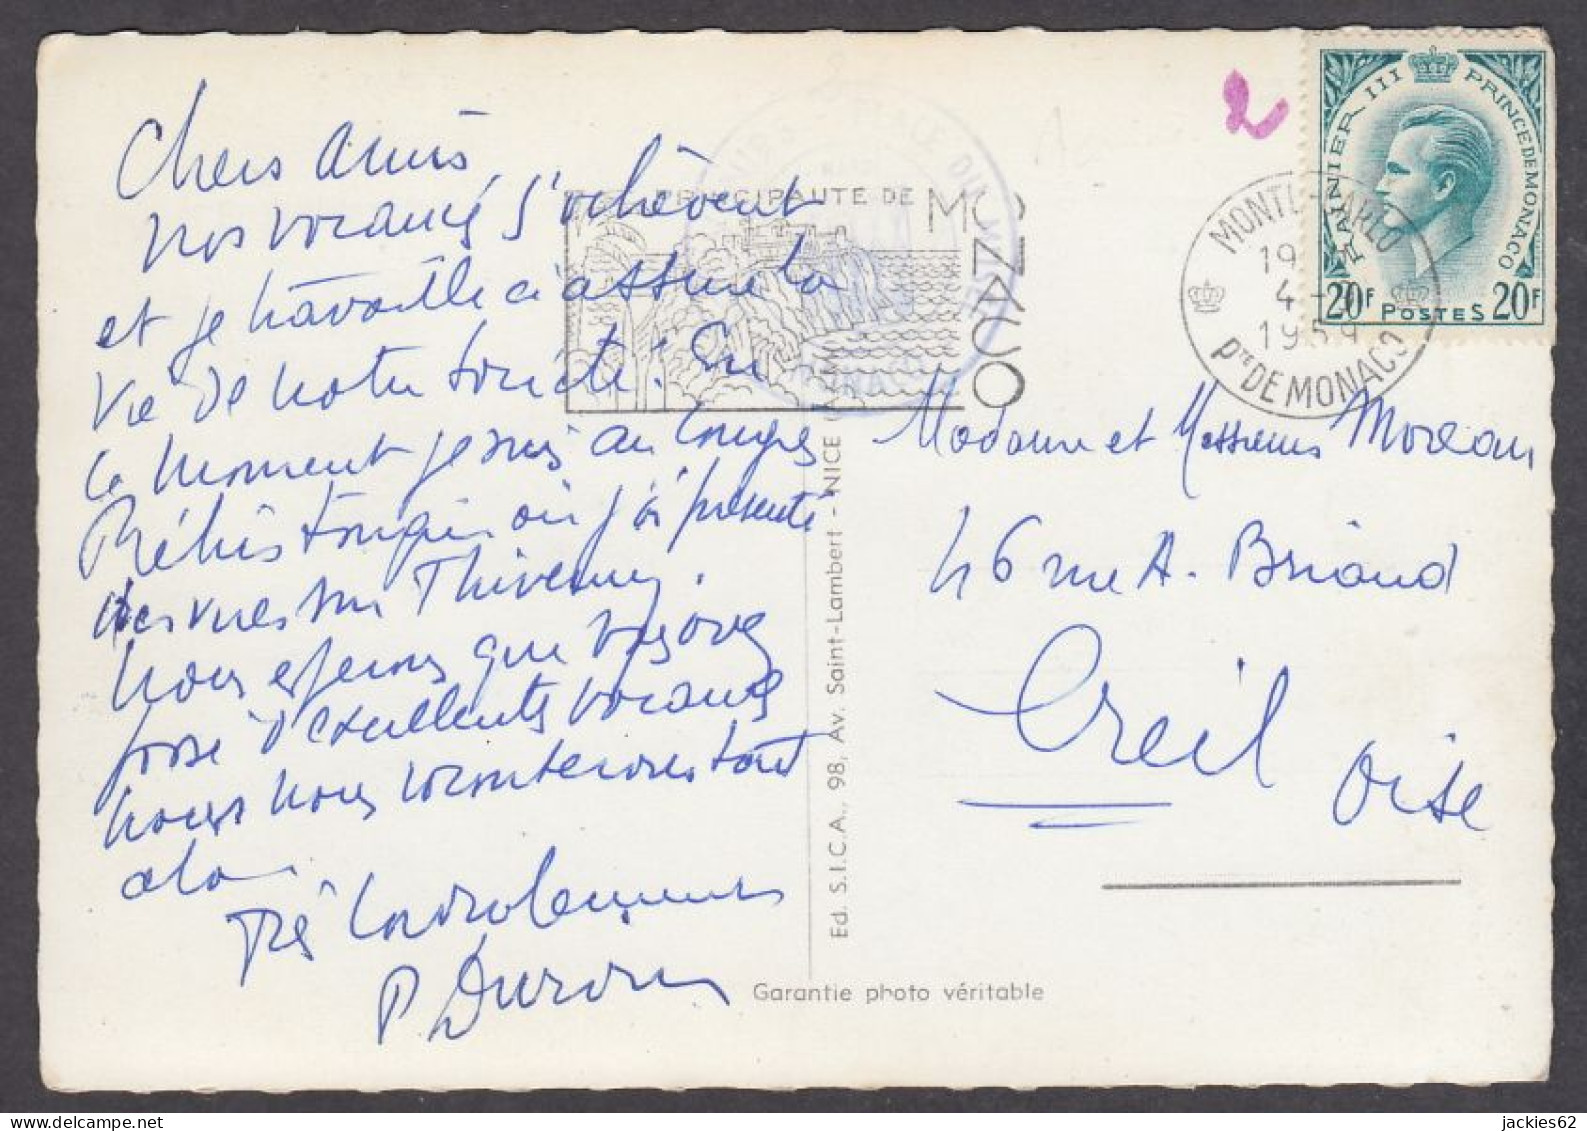 Chers Amis
Nos vacances s'achèvent
et je travaille à assurer la
vie de notre société. En
ce moment je suis au Congrès
Préhistorique où j'ai présenté
des vues sur Thiverny.
Nous espérons que vous avez
passé d'excellentes vacances
nous nous raconterons tout
cela
Très Cordialement
P. Durvin
PRINCIPAUTE DE MONACO
Ed. S.I.C.A., 98, Av. Saint-Lambert - NICE
Garantie photo véritable
2
RAINIER III PRINCE DE MONACO
20F POSTES 20F
MONTE-CARLO
19
4
1959
Pte DE MONACO
Madame et Messieurs Moreau
46 rue A. Briand
Creil
Oise
jackies62